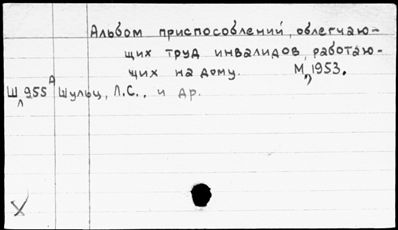 Альбом приспособлений, облегчаю-
щих труд инвалидов, работаю-
щих на дому. М., 1953.
Ш 955 А Шульц, Л.С., и др.